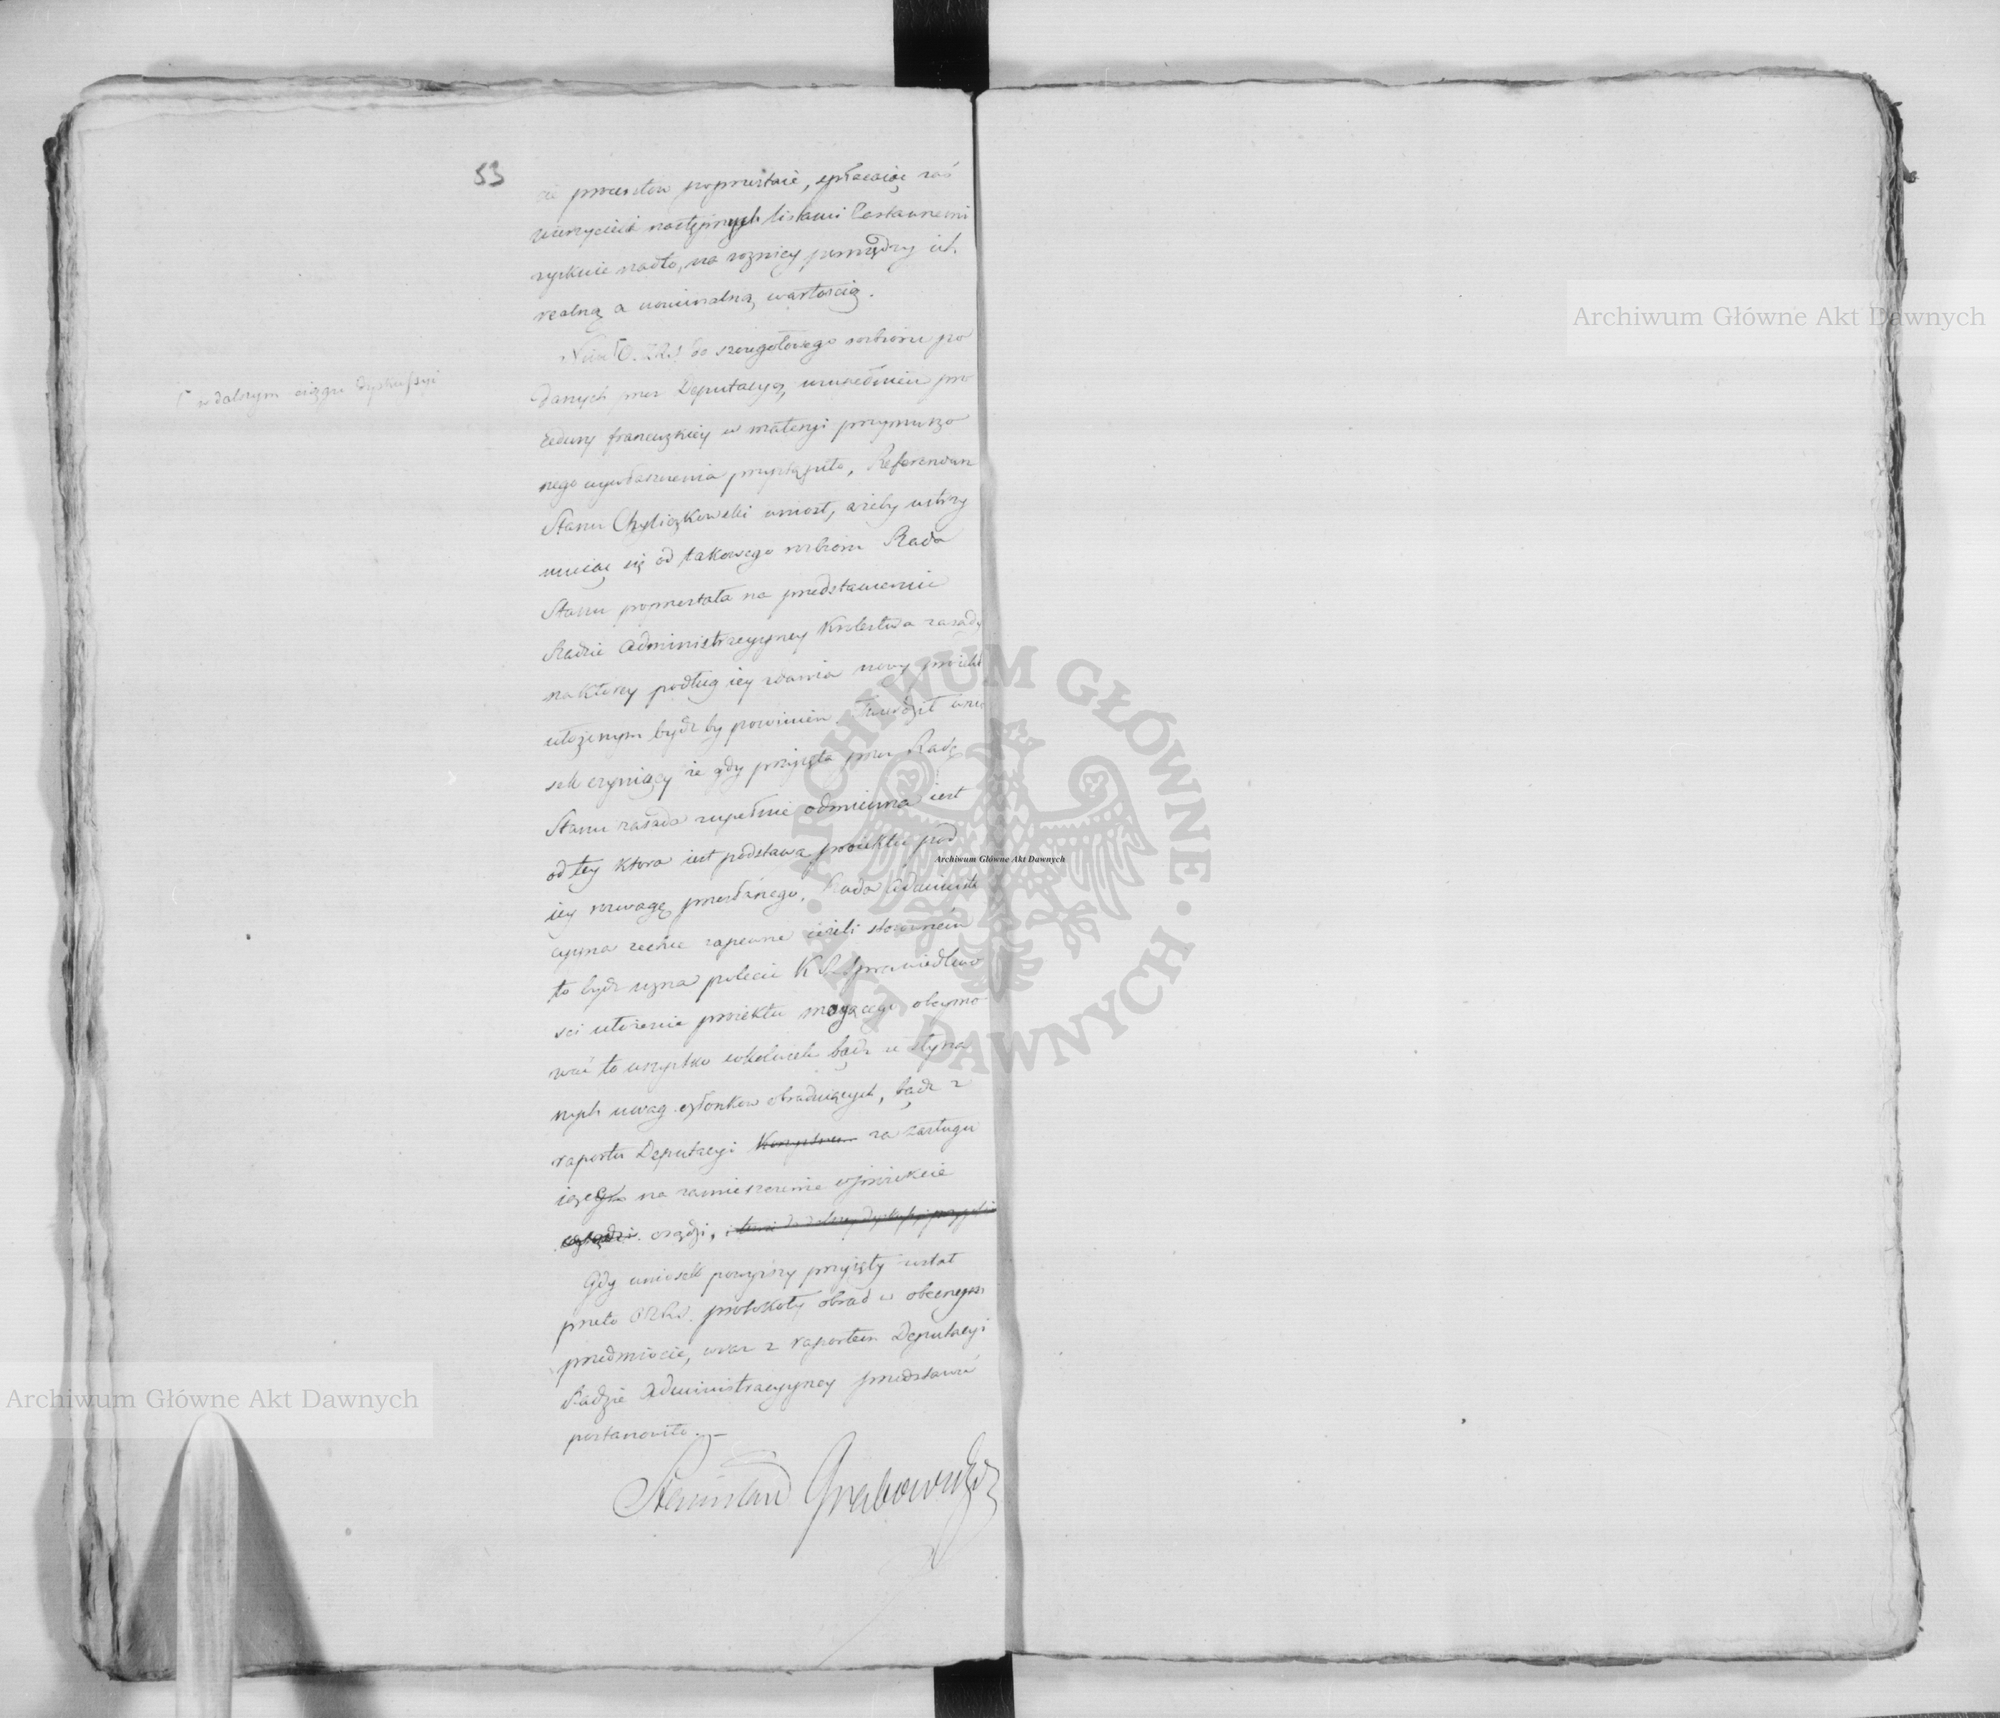 53
cie procentów poprzestaie, spłacaiąc zaś
wierzycieli następnych listami Zastawnemi
zyskuie nadto, na roznicy pomiędzy ich
realną a nominalną wartoscią.
Nim O.Z.R.S. do szczegołowego rozbioru po
w dalszym ciągu dyskussyi
danych przez Deputacyą, uzupełnień pro
cedury francuzkiey w materyi przymuszo
nego wywłaszczenia przystąpiło, Referendarz
Stanu Chyliczkowski wniosł, ażeby wstrzy
muiąc się od takowego rozbioru Rada
Stanu poprzestała na przedstawieniu
Radzie Administracyyney Krolestwa zasady
na ktorey podług iey zdania nowy proiekt
ułożonym bydź by powinien. Twierdził wnio
sek czyniący że gdy przyięta przez Radę
Stanu zasada zupełnie odmienna iest
od tey ktora iest podstawą proiektu pod
iey rozwagę przesłanego, Rada Administra
cyyna zechce zapewne ieżeli stosownem
to bydź uzna polecić K. R. Sprawiedliwo
sci ułożenie proiektu maiącego obeymo
wać to wszystko cokolwiek bądź z słysza
nych uwag członkow obraduiących, bądź z
raportu Deputacyi za zasługu
iące na zamieszczenie w proiekcie
osądzi,
Gdy wniosek powyższy przyięty został
przeto OZRS. protokoły obrad w obecnym
przedmiocie, wraz z raportem Deputacyi
Radzie Administracyyney przedstawić
postanowiło.
Stanisław Grabowski
Archiwum Główne Akt Dawnych
Archiwum Główne Akt Dawnych
Archiwum Główne Akt Dawnych
ARCHIWUM GŁÓWNE · AKT DAWNYCH ·